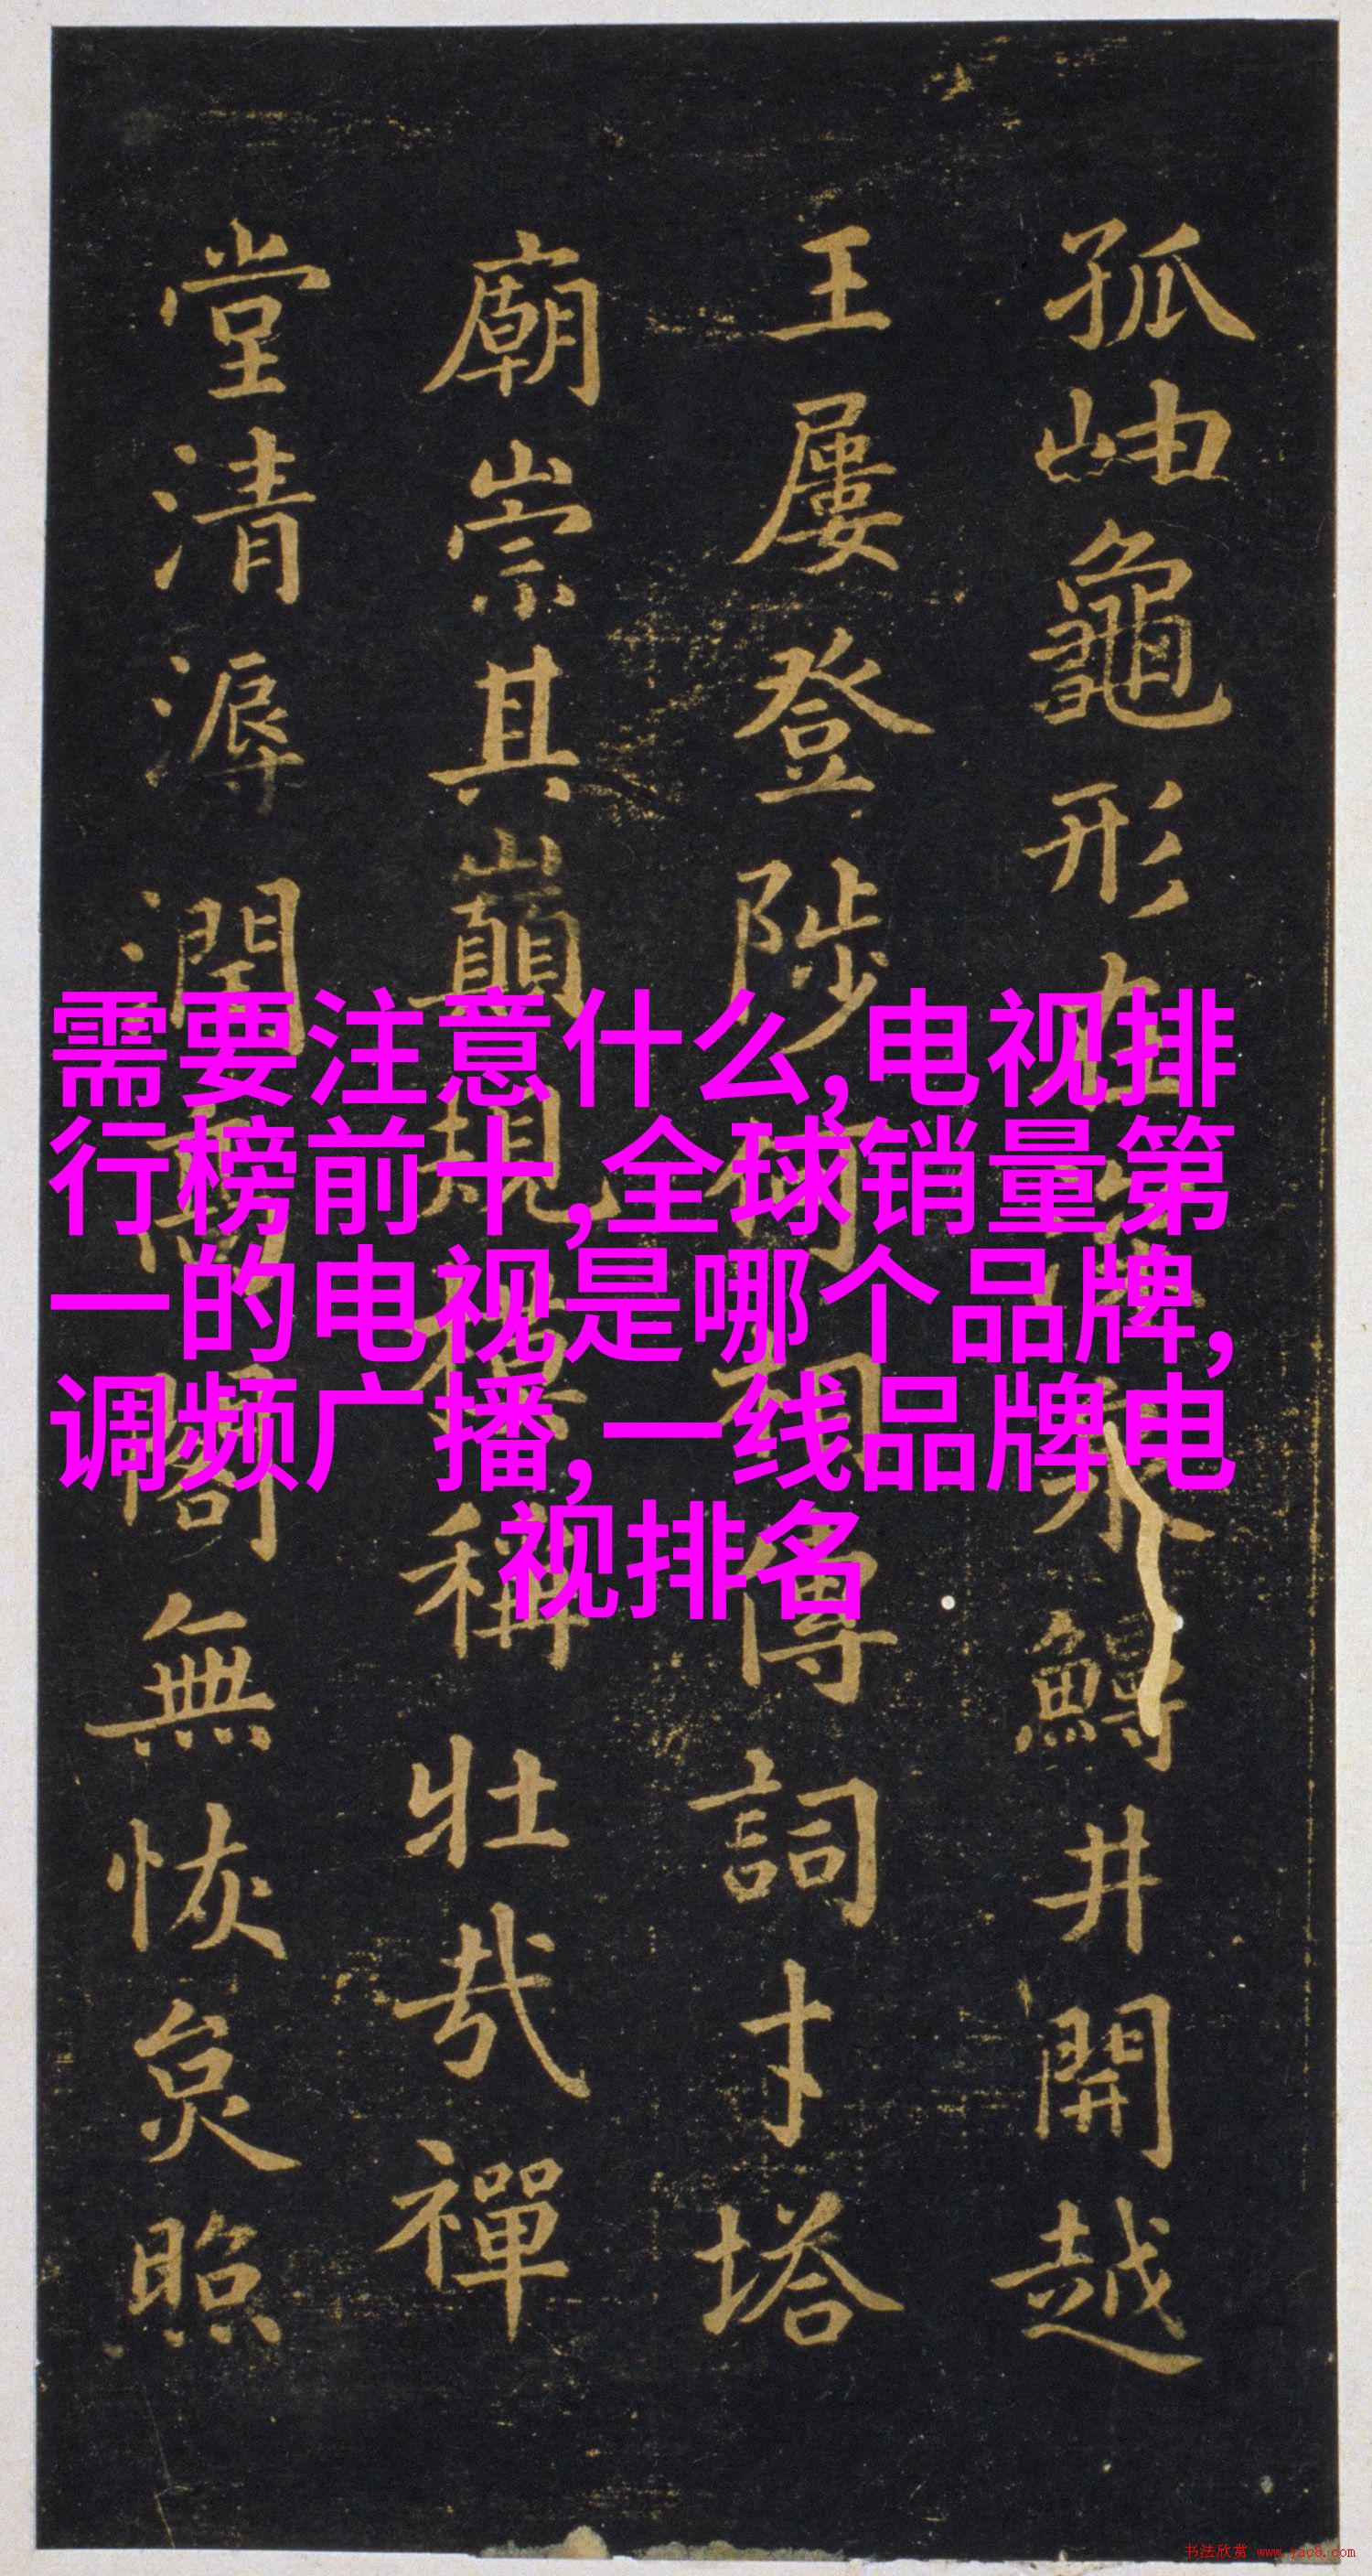 孤岫龜形在泉井開越
王屡登陟何相傳詞才塔
廟崇其巔規稱壯哉禪
堂清溽潤高閣無恢炱照
需要注意什么,电视排
行榜前十,全球销量第
一的电视是哪个品牌,
调频广播,一线品牌电
视排名
书法欣赏 www.yac8.com